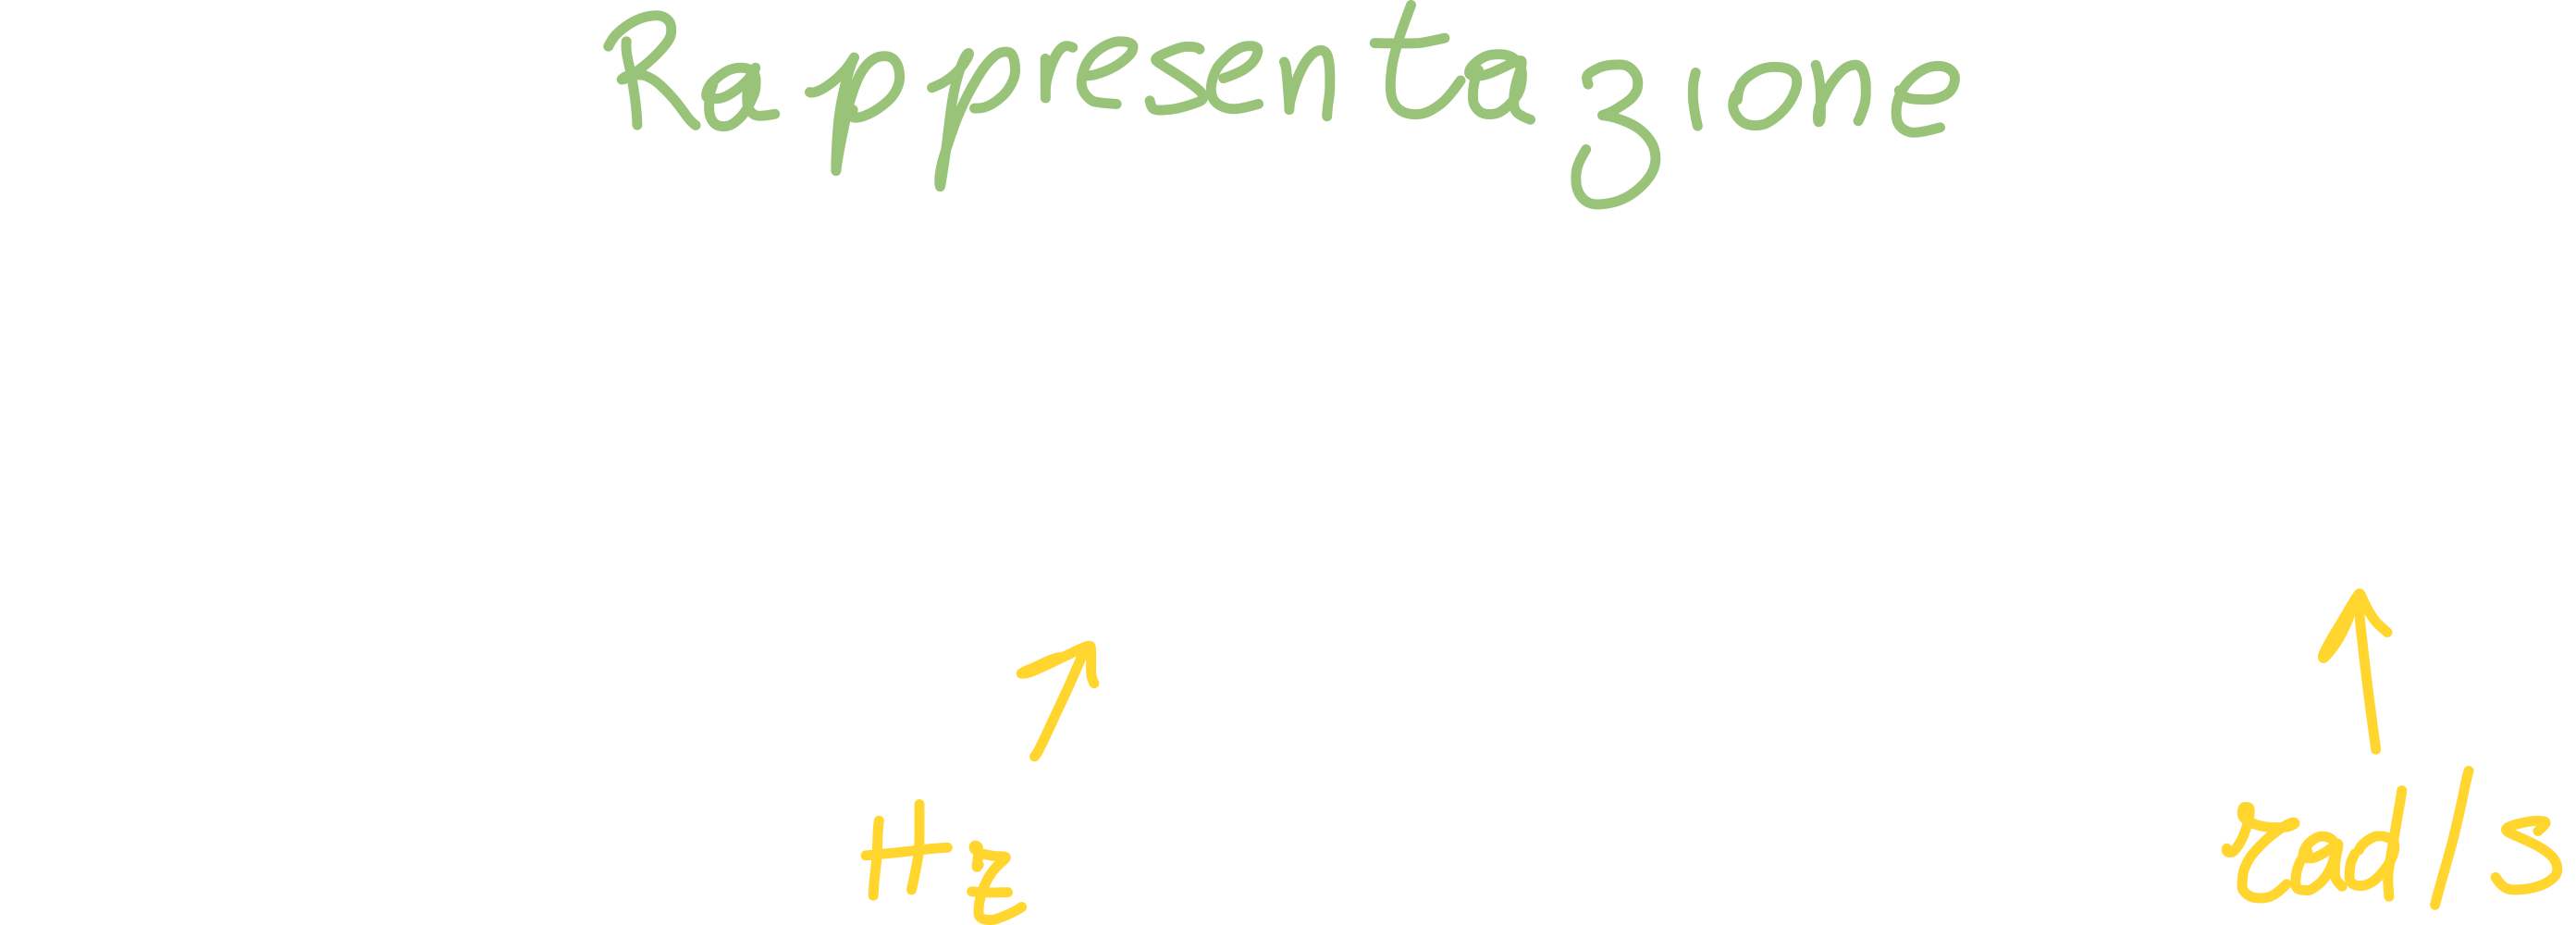 Rappresentazione
Hz rad/s